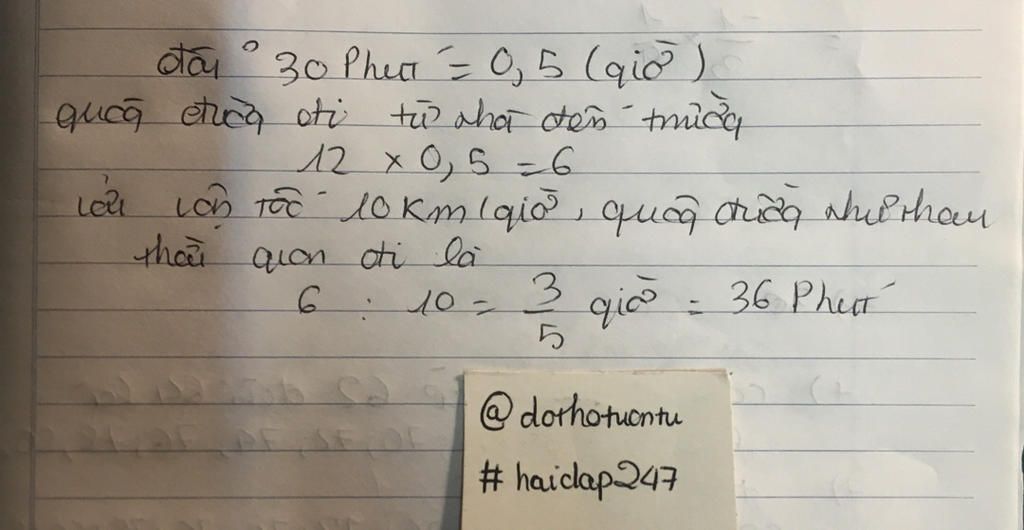 đổi 30 Phút = 0,5 (giờ)
quãng đường đi từ nhà đến trường
12 x 0,5 = 6
với vận tốc 10 Km/giờ, quãng đường như nhau
thời gian đi là
6 : 10 = 3/5 giờ = 36 Phút
@dothotuontu
# haidap247